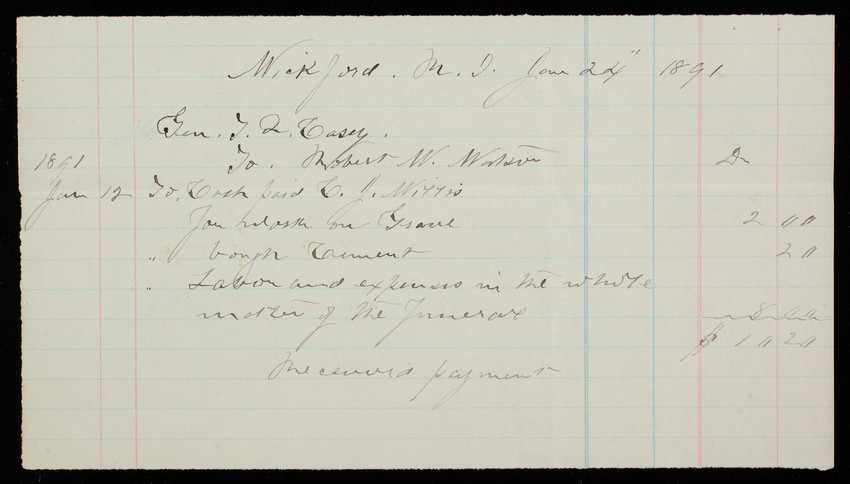 Wickford. R. I. Jan 24" 1891
Gen. T. L. Casey.
1891 To. Robert W. Watson Dr
Jan 12 To, Cash paid C. J.
for work on Grave 2 00
" bough Cement 20
" Labor and expenses in the whole
matter of the Funeral 8 00
$ 10 20
Received payment